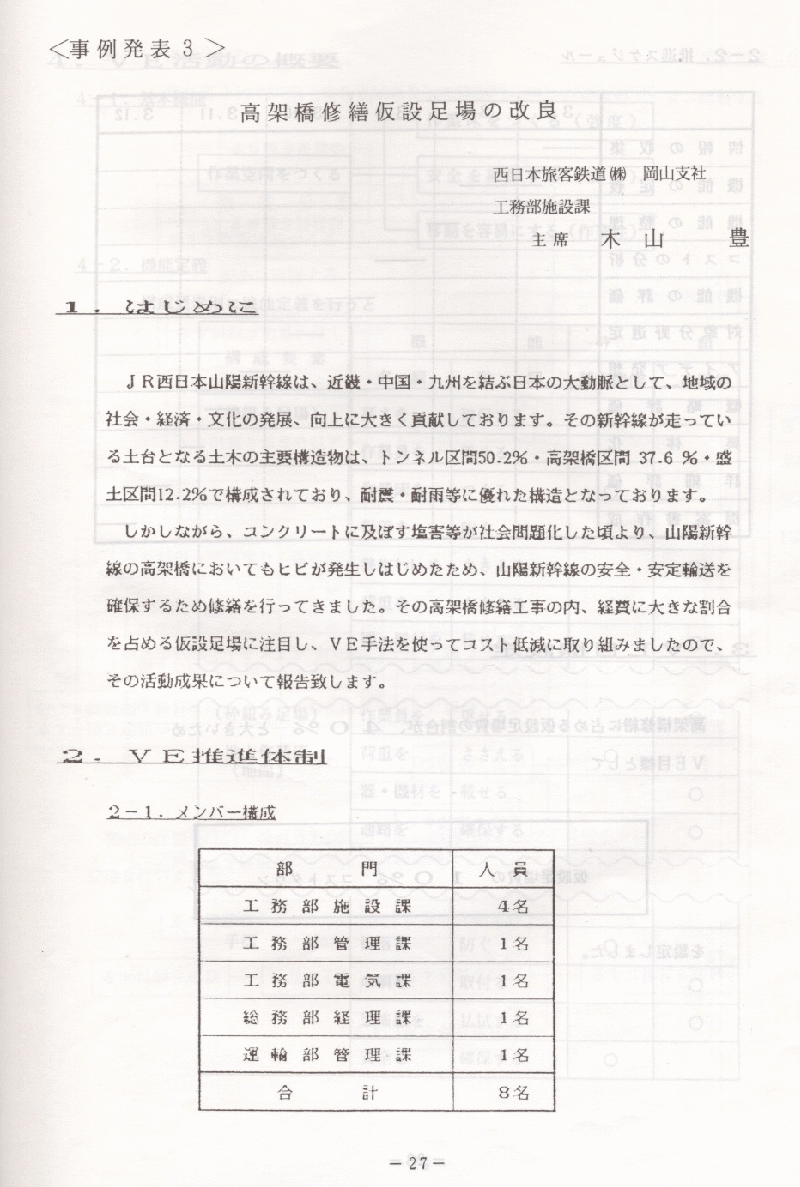 <事例発表3>
高架橋修繕仮設足場の改良
西日本旅客鉄道㈱ 岡山支社
工務部施設課
主席 木山 豊
1. はじめに
JR西日本山陽新幹線は、近畿・中国・九州を結ぶ日本の大動脈として、地域の
社会・経済・文化の発展、向上に大きく貢献しております。その新幹線が走ってい
る土台となる土木の主要構造物は、トンネル区間50.2%・高架橋区間 37.6 %・盛
土区間12.2%で構成されており、耐震・耐雨等に優れた構造となっております。
しかしながら、コンクリートに及ぼす塩害等が社会問題化した頃より、山陽新幹
線の高架橋においてもヒビが発生しはじめたため、山陽新幹線の安全・安定輸送を
確保するため修繕を行ってきました。その高架橋修繕工事の内、経費に大きな割合
を占める仮設足場に注目し、VE手法を使ってコスト低減に取り組みましたので、
その活動成果について報告致します。
2. VE推進体制
2-1. メンバー構成
部門 人員
工務部施設課 4名
工務部管理課 1名
工務部電気課 1名
総務部経理課 1名
運輸部管理課 1名
合計 8名
-27-